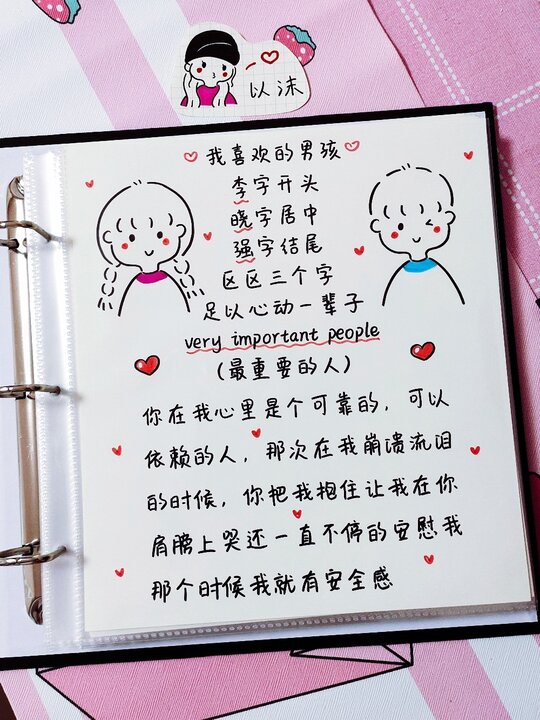 以沫
我喜欢的男孩
李字开头
晓字居中
强字结尾
区区三个字
足以心动一辈子
very important people
(最重要的人)
你在我心里是个可靠的,可以
依赖的人,那次在我崩溃流泪
的时候,你把我抱住让我在你
肩膀上哭还一直不停的安慰我
那个时候我就有安全感